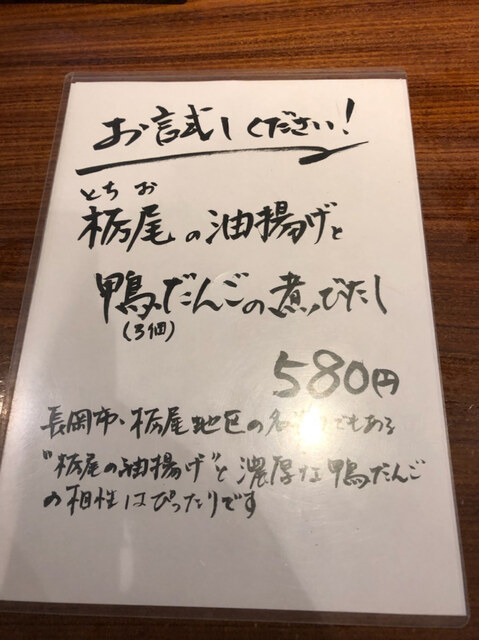 お試しください!
とちお
栃尾の油揚げと
鴨だんごの煮びたし
(3個)
580円
長岡市、栃尾地区の名 でもある
"栃尾の油揚げ"と濃厚な鴨だんご
の相性はぴったりです